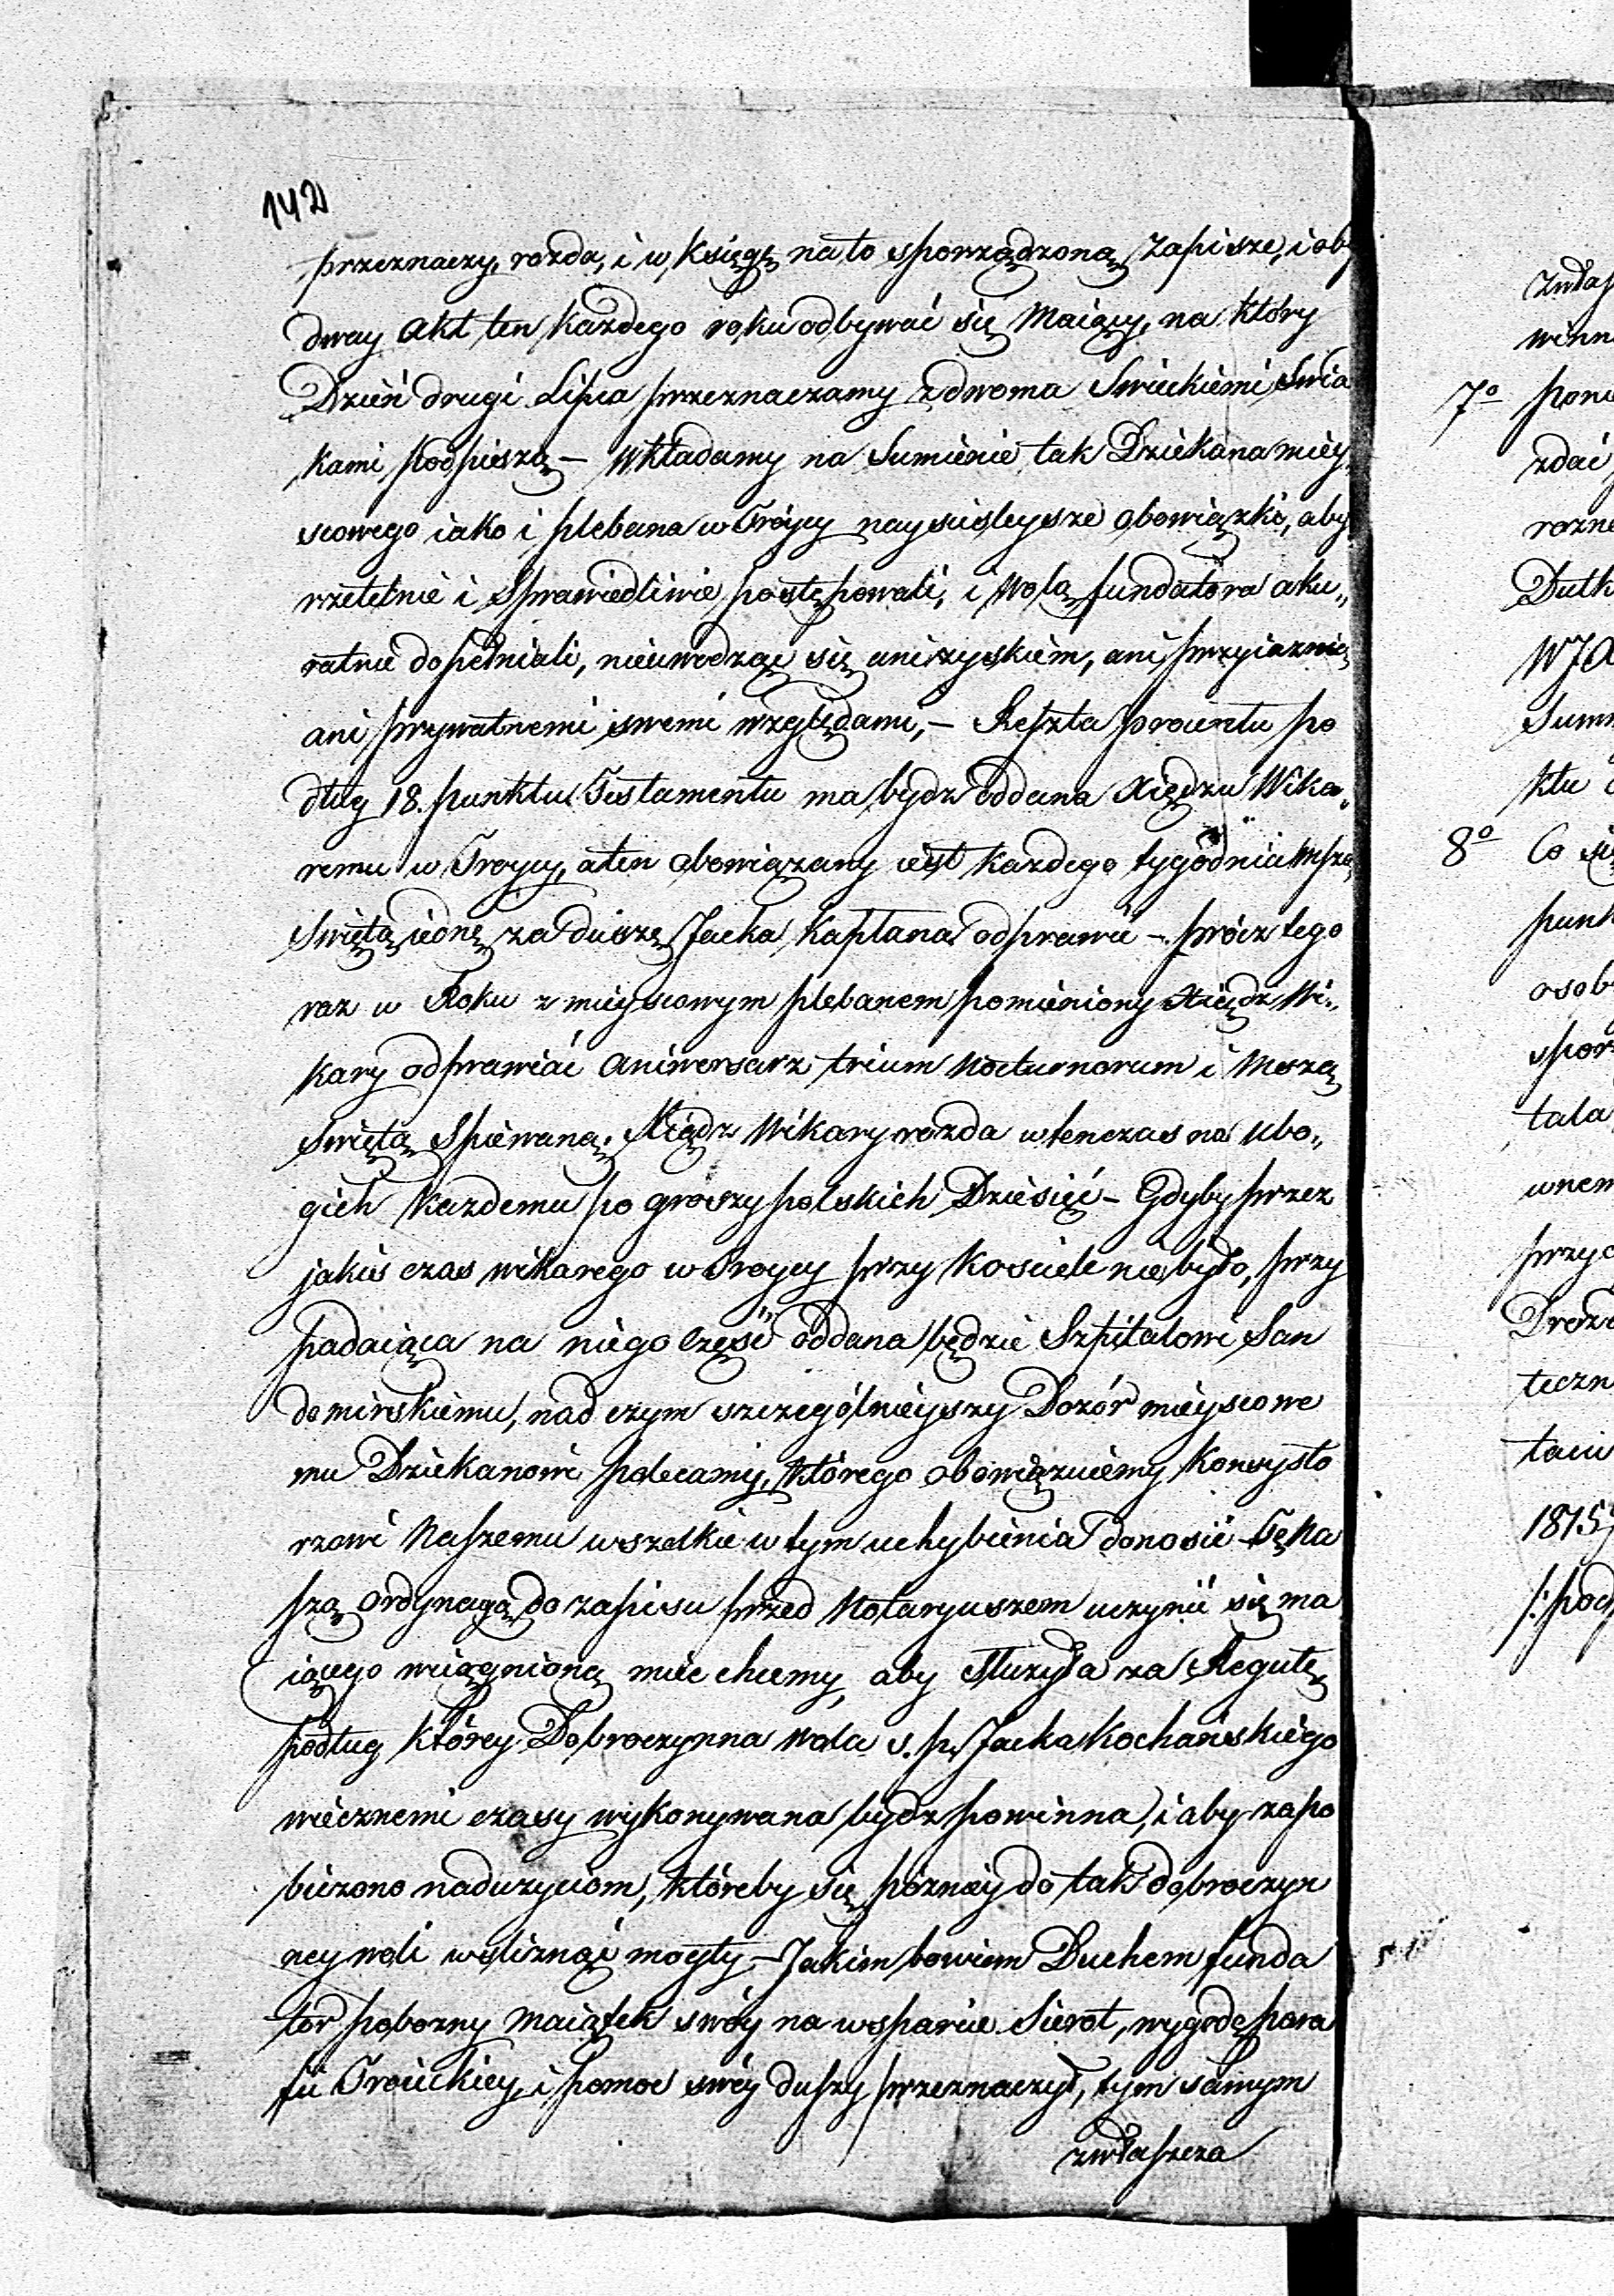 142
przeznaczy, rozda, i w Księgę na to sporządzoną Zapisze, i oby
dway Akt ten każdego roku odbywać się Maiący, na który
Dzień drugi Lipca przeznaczamy z dwoma Swieckiemi Swia
kami podpieszą – Wkładamy na Sumienie tak Dziekana miey
scowego iako i plebana w Tróycy nayscisleysze obowiązki, aby
rzetelnie i Sprawiedliwie postępowali, i Wolą fundatora aku„
ratnie dopełniali, nieuwodząc się ani zyskiem, ani przyiaznią
ani prywatnemi swemi względami, – Reszta procentu po
dług 18. punktu Testamentu ma bydz oddana Xiędzu Wika„
remu w Troycy, a ten obowiązany iest każdego tygodnia Mszą
Swiętą iedną za duszę Jacka Kapłana odprawić – prócz tego
raz w Roku z mieyscowym plebanem pomieniony Xiądz Wi„
kary odprawiać Aniwersarz trium Nocturnorum i Mszą
Swiętą Spiewaną. Xiądz Wikary rozda wtenczas na Ubo„
gich Każdemu po groszy polskich Dziesięć – Gdyby przez
jakiś czas wikarego w Troycy przy Kościele nie było, przy
padaiąca na niego część oddana będzie Szpitalowi San
domirskiemu, nad czym szczególnieyszy Dozór mieyscowe
mu Dziekanowi polecamy, którego obowiązuiemy Konsysto
rzowi Naszemu wszelkie w tym uchybienia donosić – Tę Na
szą Ordynacyą do zapisu przed Notaryuszem uczynić się ma
iącego wciągnioną mieć chcemy, aby służyła za Regułę
podług którey Dobroczynna Wola s. p. Jacka Kochańskiego
wiecznemi czasy wykonywana bydz powinna, i aby zapo
bieżono nadużyciom, któreby się pózniey do tak dobroczyn
ney woli wsliznąć mogły – Jakim bowiem Duchem funda
tor pobożny Maiątek swóy na wsparcie Sierot, wygodę para
fii Troickiey i pomoc swéy duszy przeznaczył, tym samym
zwłaszcza
7o
8o Co się
1815